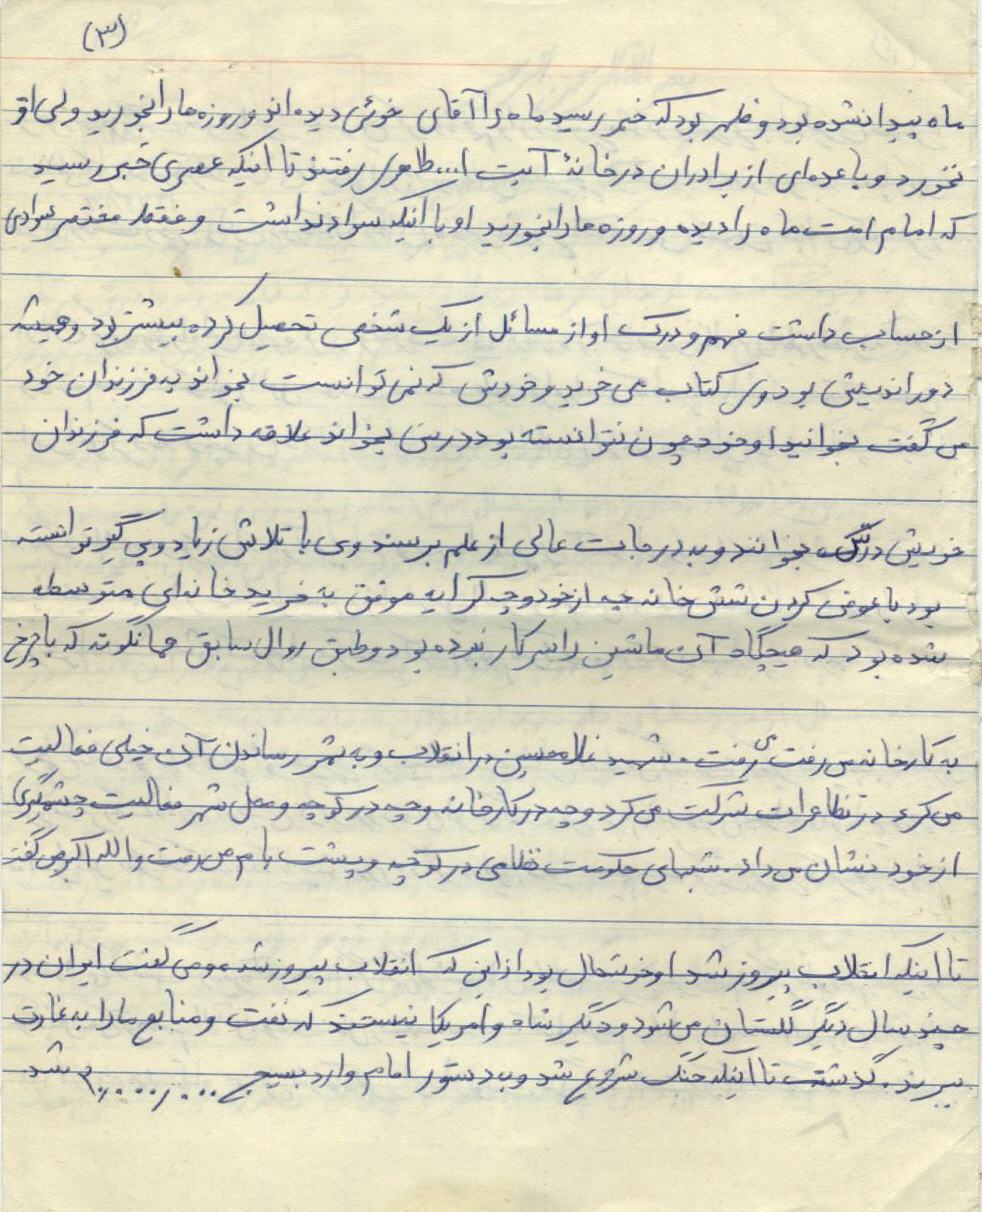 (۳)
ماه پیدا نشده بود و ظهر بود که خبر رسید ماه را آقای خوئی دیده‌اند و روزه‌ها را بخورید ولی او
نخورد و با عده‌ای از برادران در خانهٔ آیت ا... طاهری رفتند تا اینکه عصری خبر رسید
که امام امت ماه را دیده و روزه‌ها را بخورید او با اینکه سواد نداشت و فقط مختصر سوادی
از حساب داشت فهم و درک او از مسائل از یک شخص تحصیل کرده بیشتر بود و همیشه
دوراندیش بود وی کتاب می‌خرید و خودش که نمی‌توانست بخواند به فرزندان خود
می‌گفت بخوانید او خود چون نتوانسته بود درس بخواند علاقه داشت که فرزندان
خویش درس بخوانند و به درجات عالی از علم برسند وی با تلاش زیاد و پی‌گیر توانسته
بود با عوض کردن شش خانه چه از خود و چه کرایه موفق به خرید خانه‌ای متوسط
شده بود که هیچگاه آن ماشین را سر کار نبرده بود و طبق روال سابق همانگونه که با چرخ
به کارخانه می‌رفت می‌رفت. شهید غلامحسین در انقلاب و به ثمر رساندن آن خیلی فعالیت
می‌کرد در تظاهرات شرکت می‌کرد و چه در کارخانه و چه در کوچه و محل شهر فعالیت چشمگیری
از خود نشان می‌داد. شبهای حکومت نظامی در کوچه و پشت بام می‌رفت و الله اکبر می‌گفت
تا اینکه انقلاب پیروز شد او خوشحال بود از این که انقلاب پیروز شده و می‌گفت ایران در
چند سال دیگر گلستان می‌شود و دیگر شاه و امریکا نیستند که نفت و منابع ما را به غارت
ببرند. گذشت تا اینکه جنگ شروع شد و به دستور امام وارد بسیج ۲۰٬۰۰۰٬۰۰۰ شد